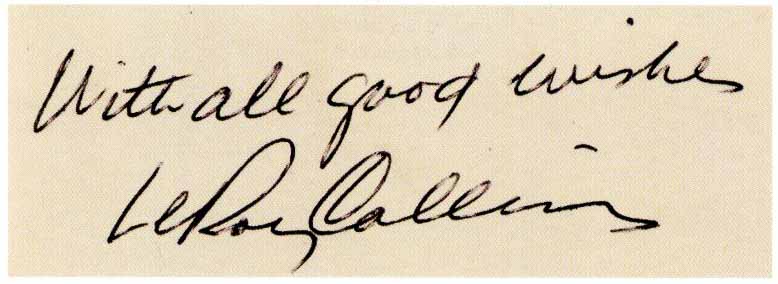 With all good wishes
LeRoy Collins